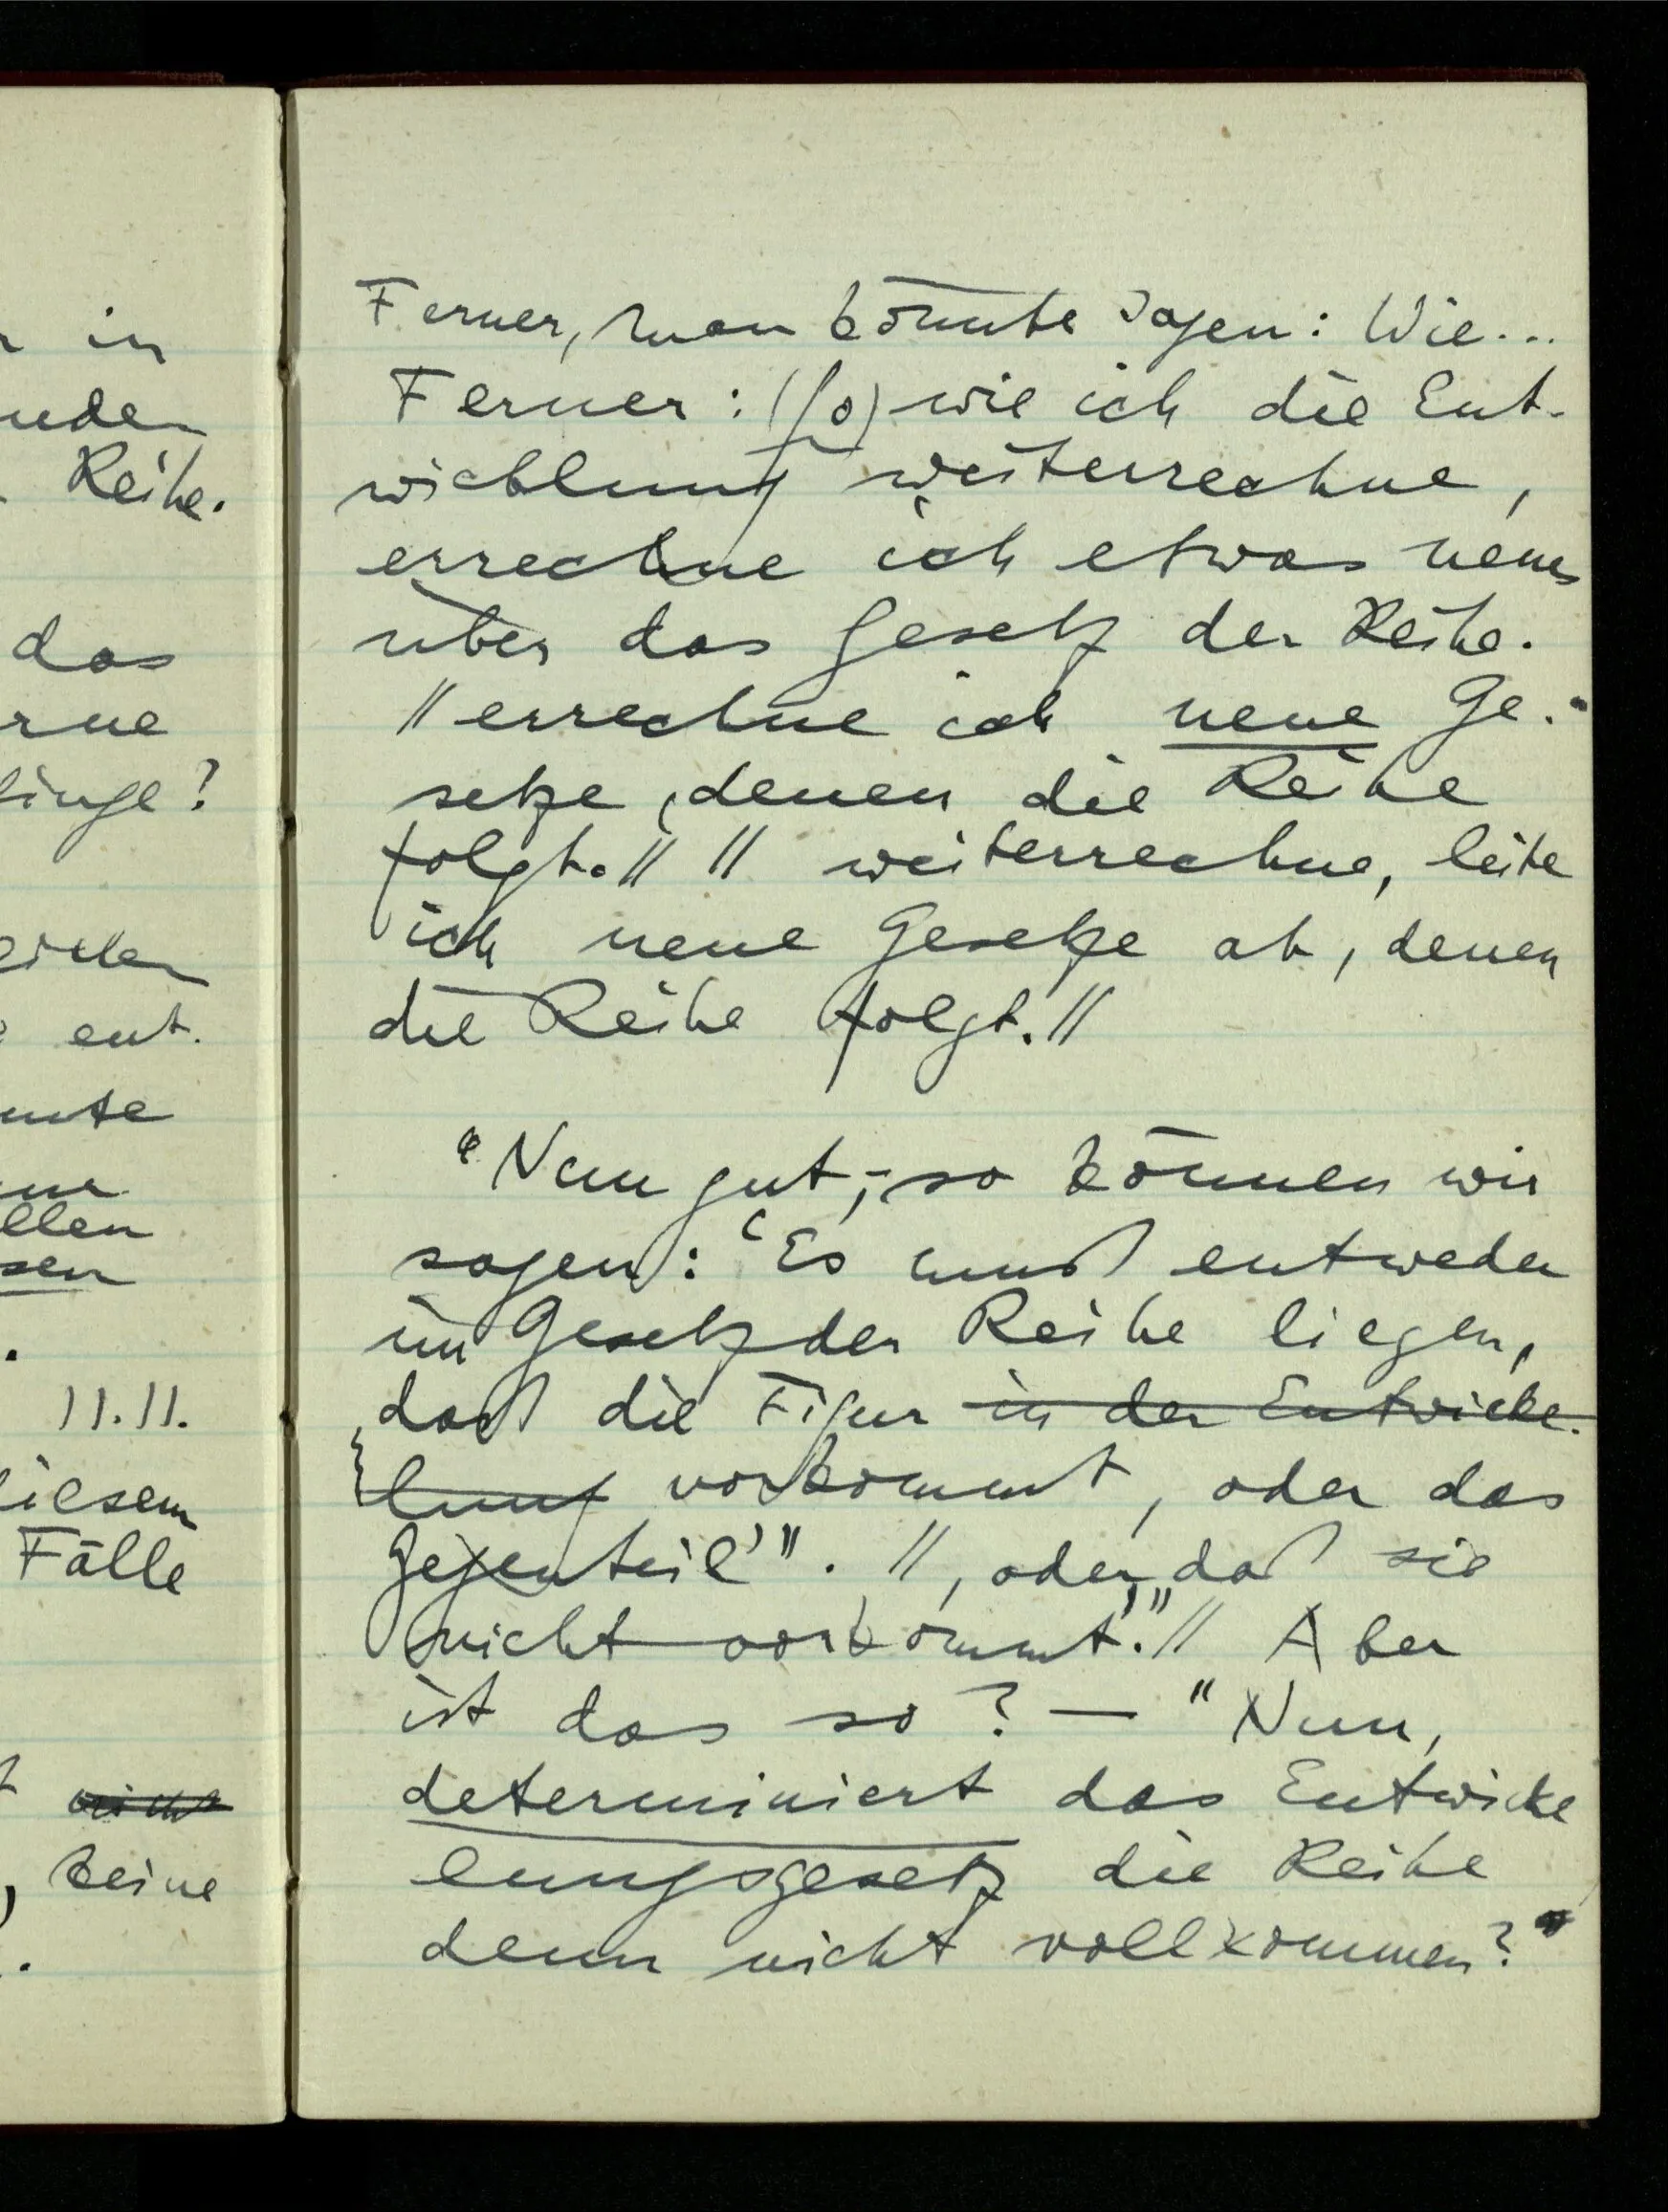 r in
nden
Reihe.
das
rne
linge?
ent.
nnte
llen
sen
11.11.
diesem
Fälle
nicht
, keine
Ferner, man könnte sagen: Wie...
Ferner: (so) wie ich die Ent-
wicklung weiterrechne,
errechne ich etwas neues
über das Gesetz der Reihe.
// errechne ich neue Ge-
setze, denen die Reihe
folgt. // // weiterrechne, leite
ich neue Gesetze ab, denen
die Reihe folgt. //
"Nun gut, – so können wir
sagen: 'Es muß entweder
im Gesetz der Reihe liegen,
daß die Figur in der Entwicke-
lung vorkommt, oder das
Gegenteil'". //, oder, daß sie
nicht vorkommt'." // Aber
ist das so? — "Nun,
determiniert das Entwicke
lungsgesetz die Reihe
denn nicht vollkommen?"